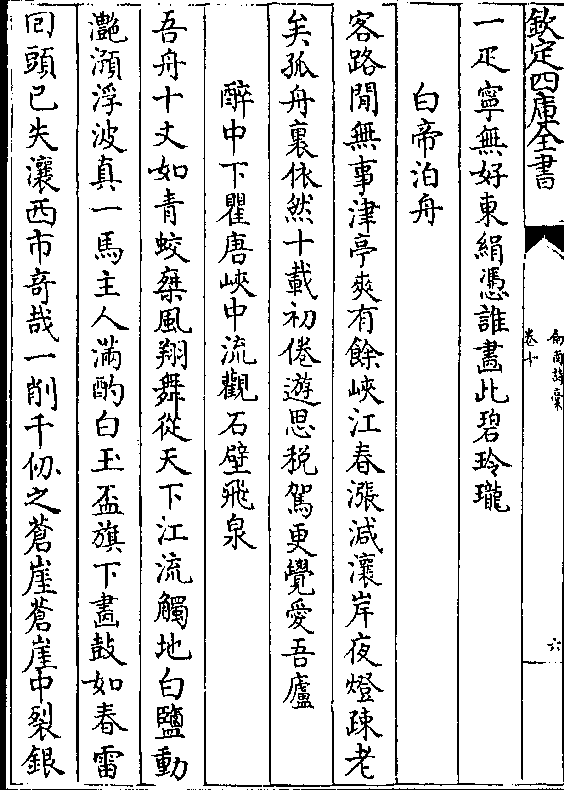 欽定四庫全書
劒南詩稾
卷十
六
一疋寧無好東絹憑誰畵此碧玲瓏
白帝泊舟
客路閒無事津亭爽有餘峽江春漲減瀼岸夜燈疎老
矣孤舟裏依然十載初倦遊思稅駕更覺愛吾廬
醉中下瞿唐峽中流觀石壁飛泉
吾舟十丈如青蛟椉風翔舞從天下江流觸地白鹽動
灧澦浮波真一馬主人滿酌白玉盃旗下畵鼓如春雷
回頭已失瀼西市奇哉一削千仞之蒼崖蒼崖中裂銀